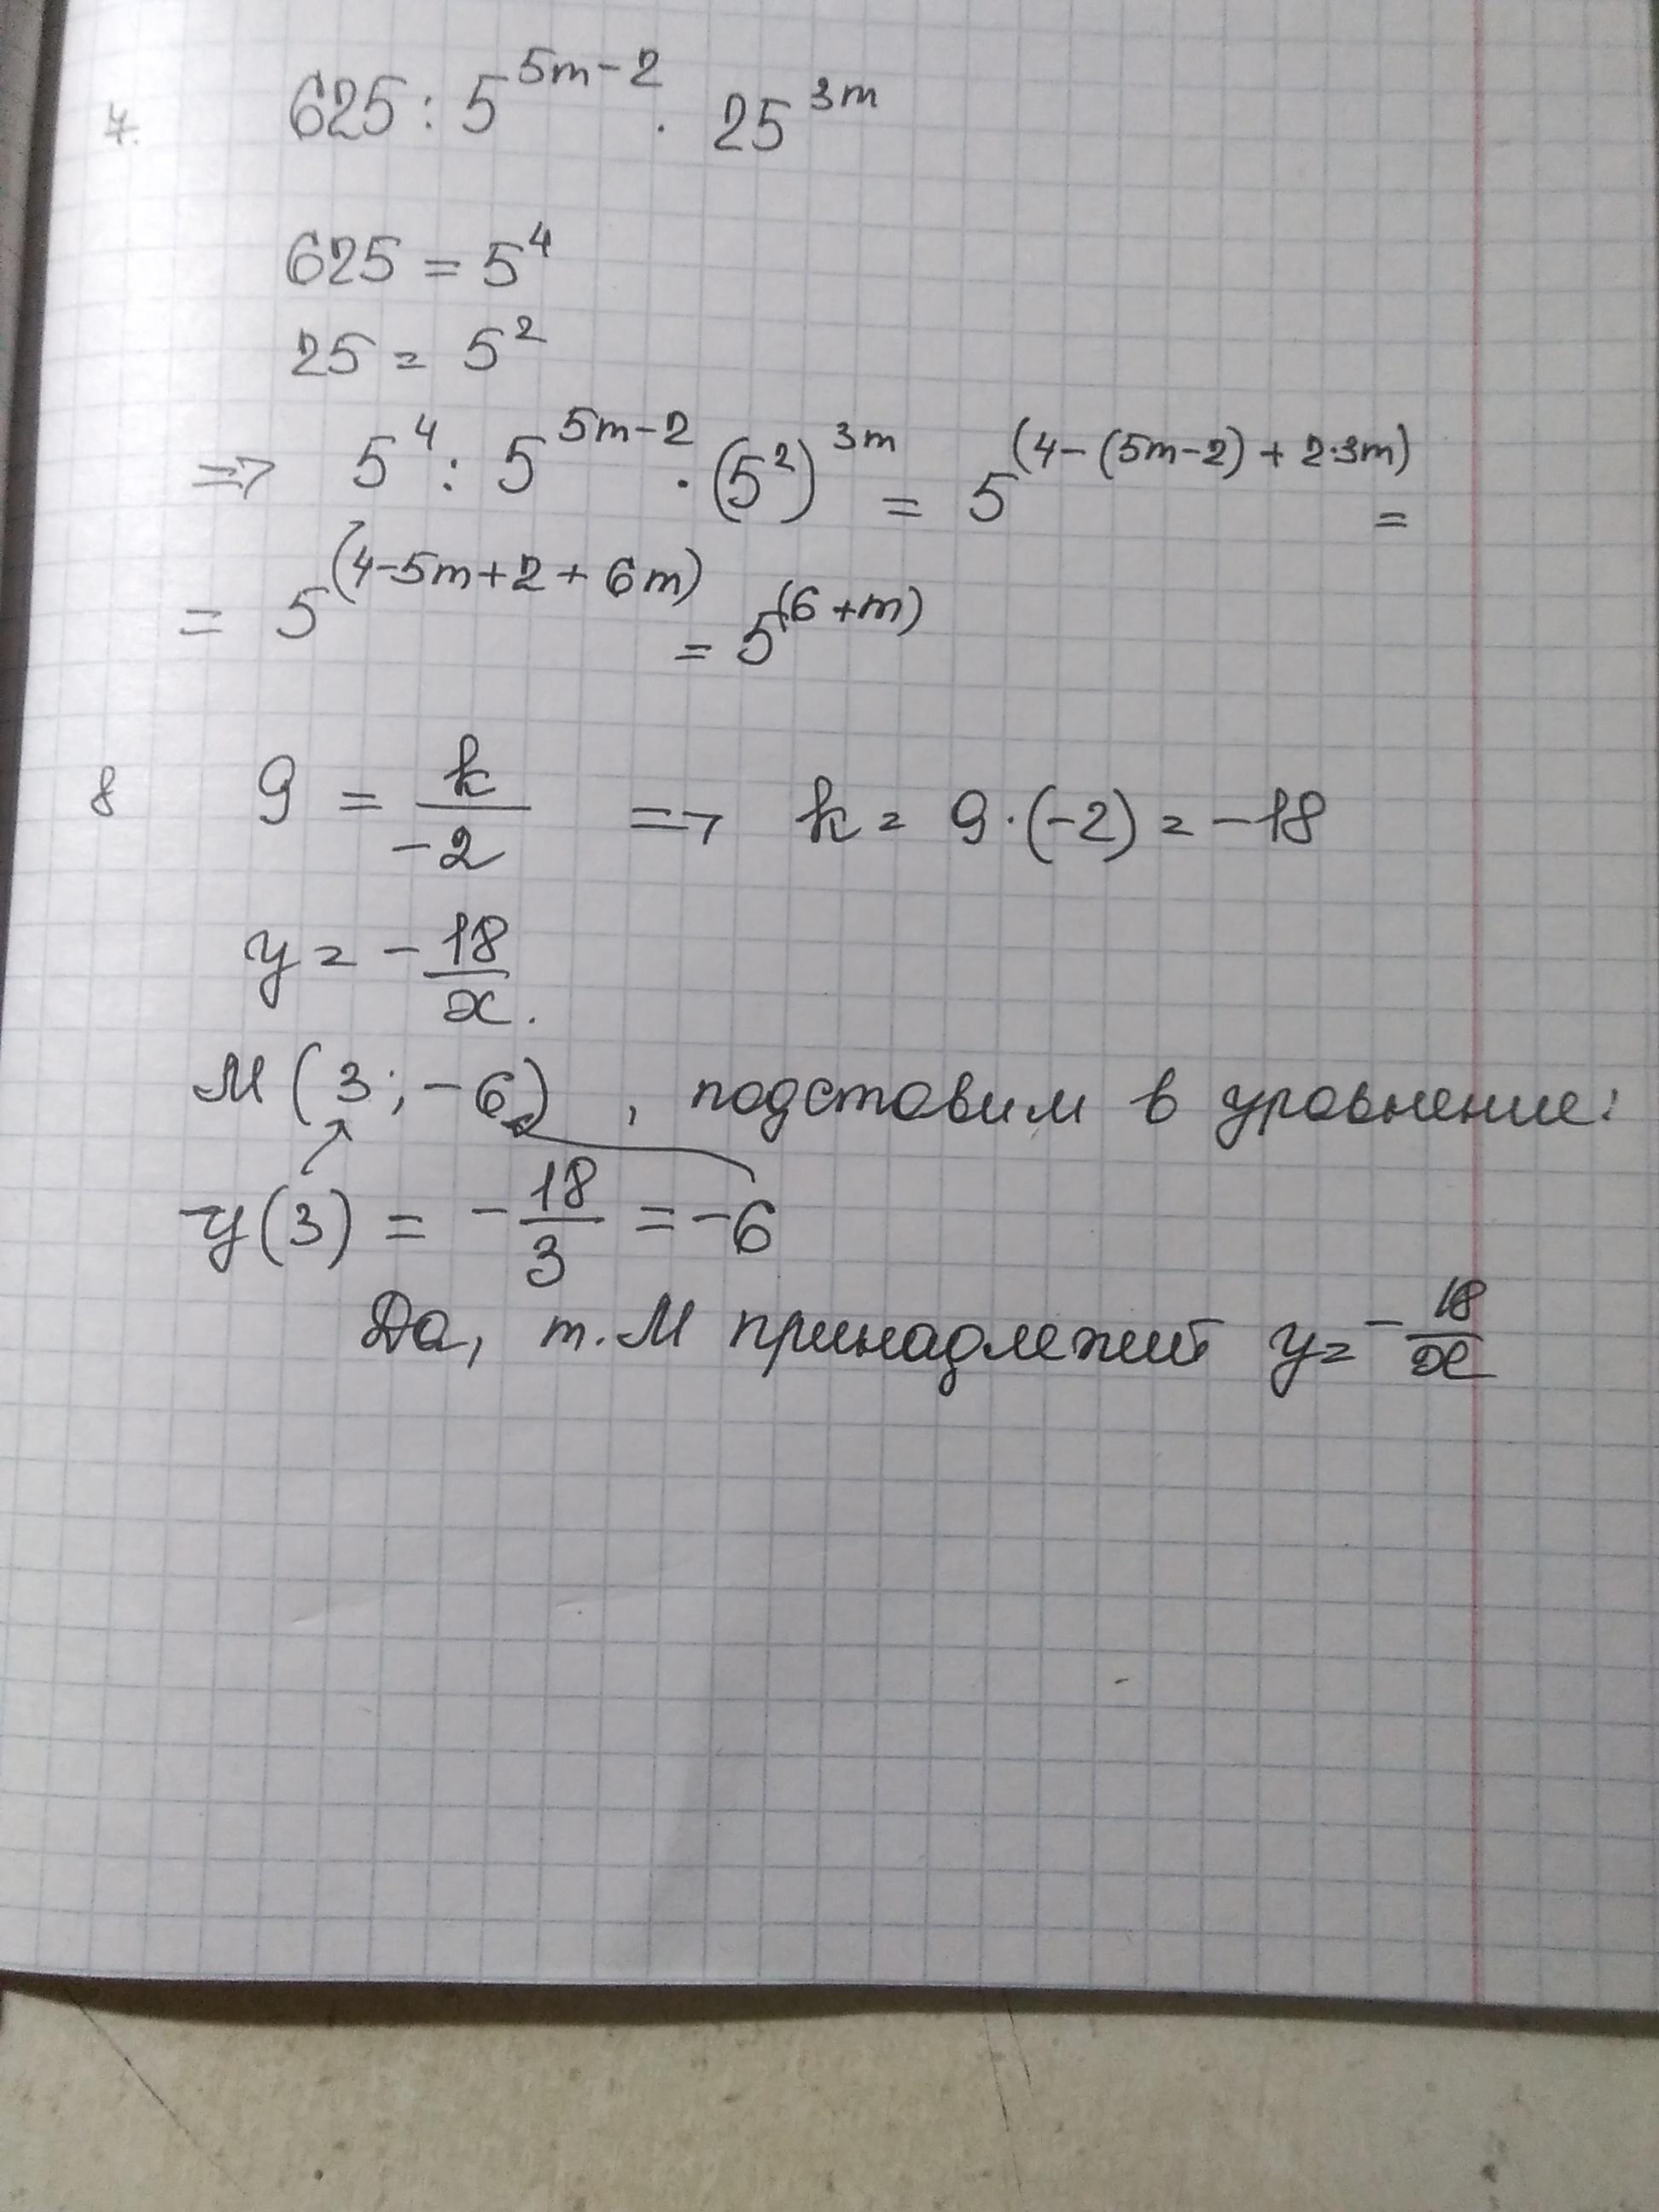 7. 625 : 5^{5m-2} · 25^{3m}
625 = 5^4
25 = 5^2
=> 5^4 : 5^{5m-2} · (5^2)^{3m} = 5^{(4-(5m-2)+2·3m)} =
= 5^{(4-5m+2+6m)} = 5^{(6+m)}
8 9 = \frac{k}{-2} => k = 9·(-2) = -18
y = -\frac{18}{x}.
М(3; -6), подставим в уравнение:
y(3) = -\frac{18}{3} = -6
Да, т. М принадлежит y = -\frac{18}{x}